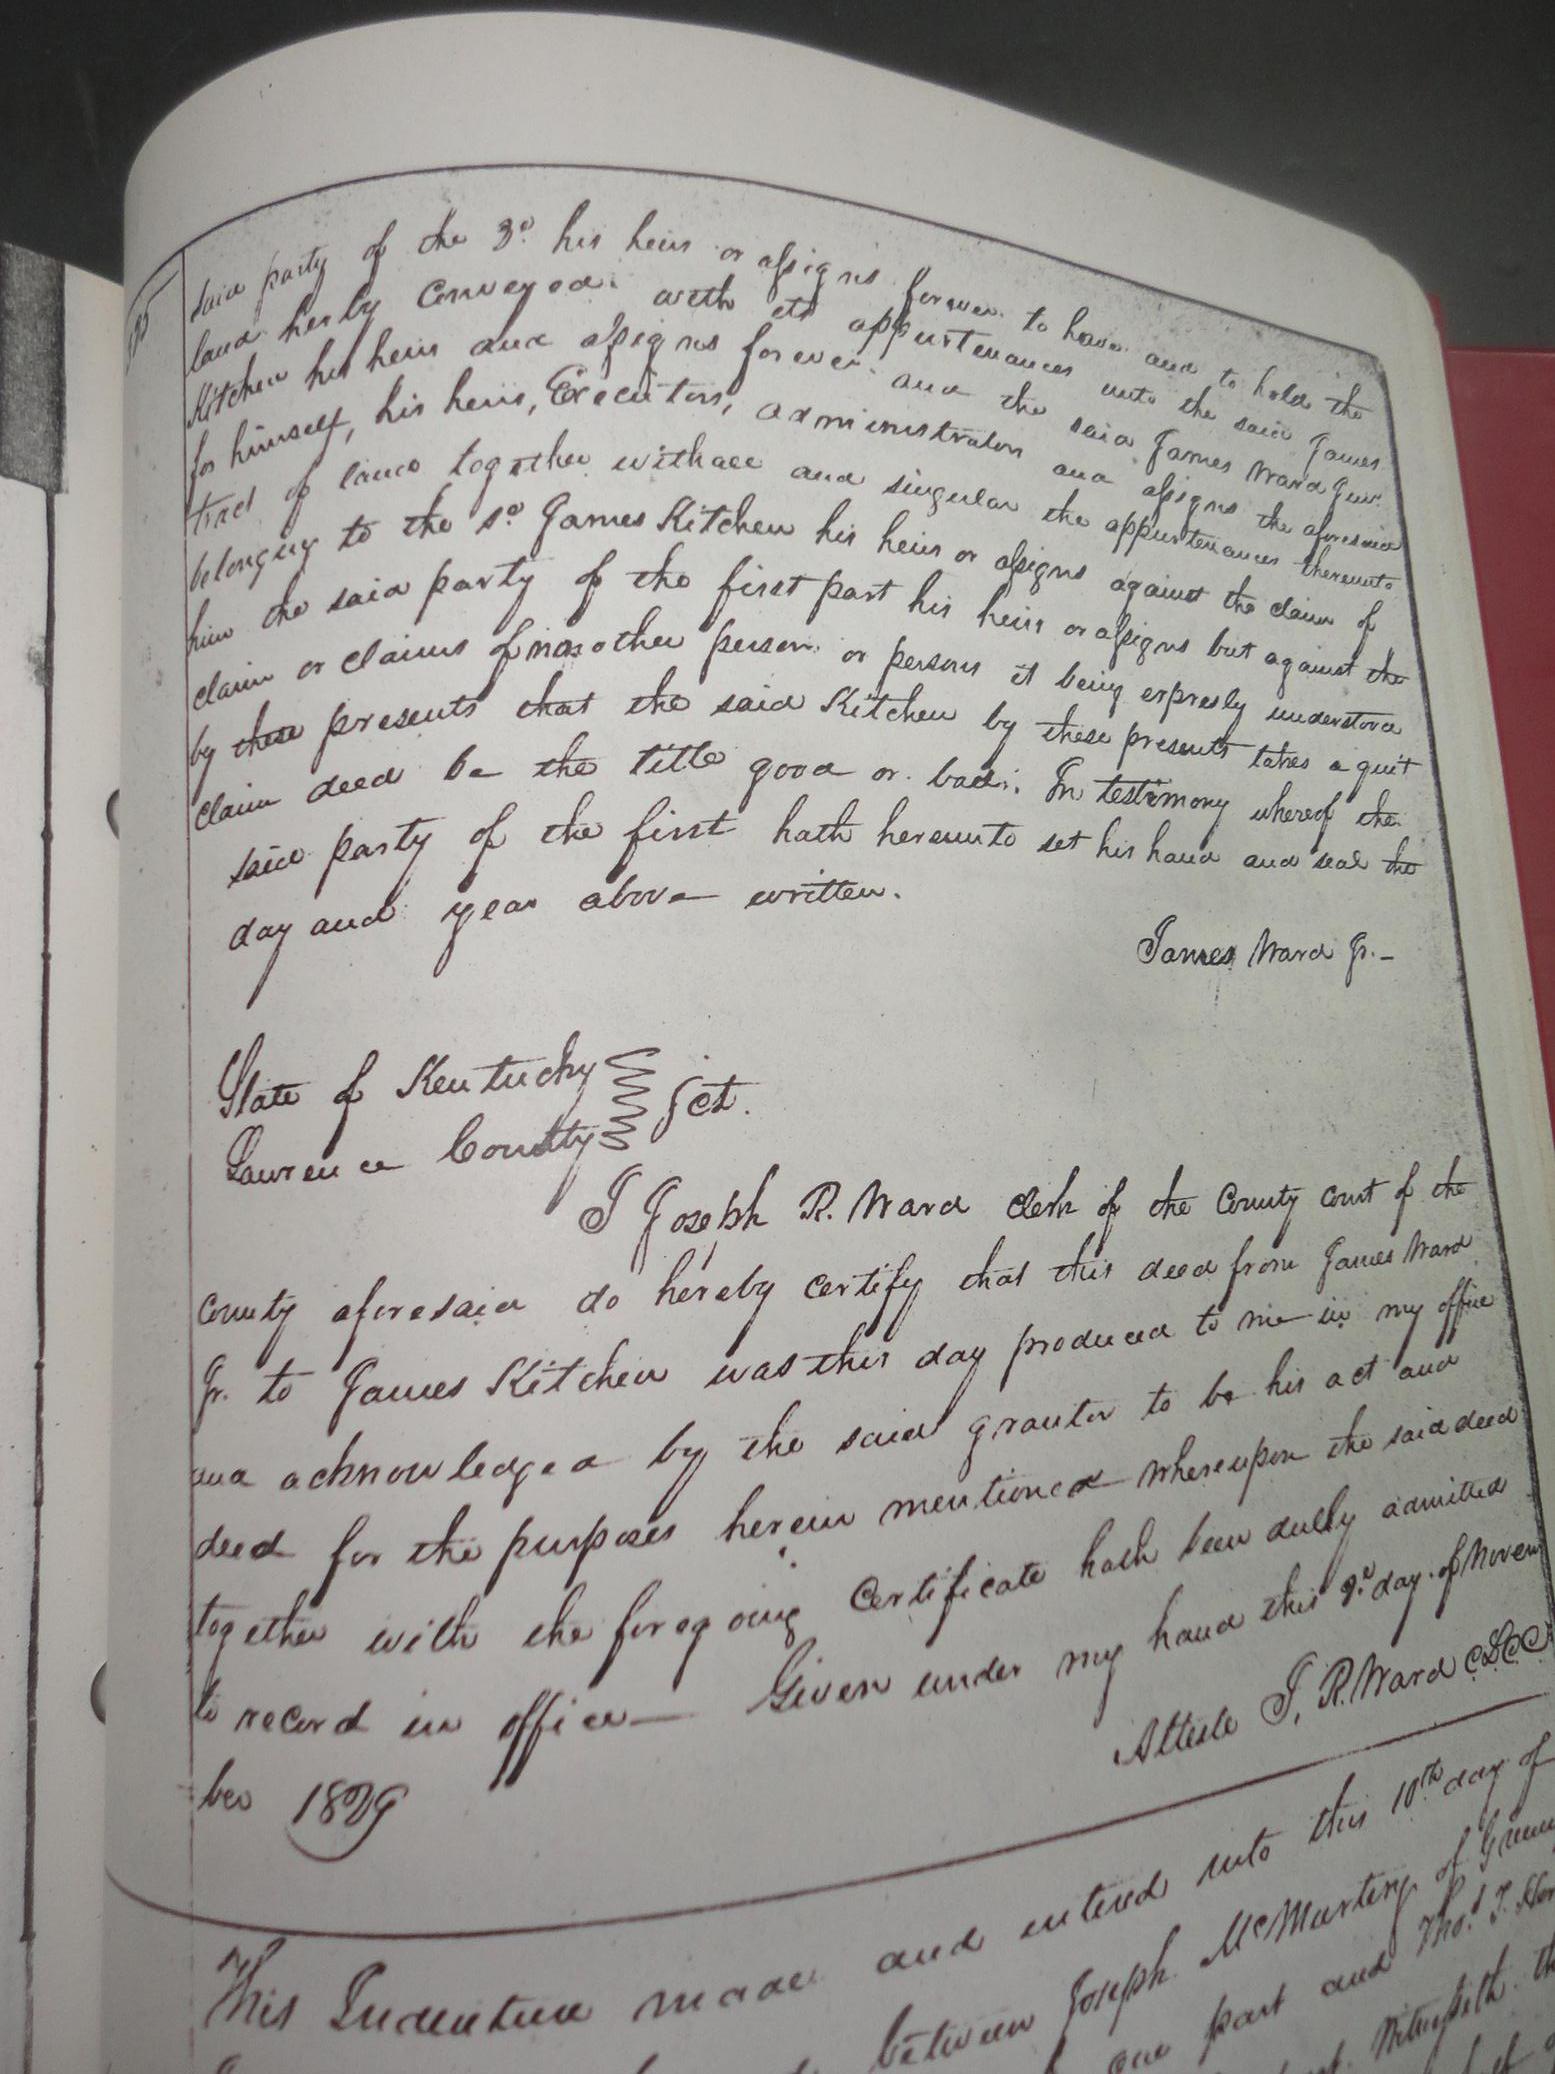 said party of the 3d. his heirs or assigns forever. to have and to hold the
land herby conveyed. with its appurtenances unto the said James
Kitchen his heirs and assigns forever. and the said James Ward Junr.
for himself, his heirs, Executors, administrators and assigns the aforesaid
tract of land together with all and singular the appurtenances thereunto
belonging to the sd. James Kitchen his heirs or assigns against the claim of
him the said party of the first part his heirs or assigns but against the
claim or claims of no other person or persons it being expressly understood
by these presents that the said Kitchen by these presents takes a quit
claim deed be the title good or bad. In testimony whereof the
said party of the first hath hereunto set his hand and seal the
day and year above written.
James Ward Jr.
State of Kentucky
Lawrence County Sct.
I Joseph R. Ward Clerk of the County Court of the
County aforesaid do hereby certify that this deed from James Ward
Jr. to James Kitchen was this day produced to me in my office
and acknowledged by the said grantor to be his act and
deed for the purposes herein mentioned whereupon the said deed
together with the foregoing Certificate hath been dully admitted
to record in office Given under my hand this day of Novem
ber 1829
Atteste J. R. Ward C.L.C.C
This Indenture made and entered into this 10th day of
between Joseph McMurtry of Green
one part and Thos. T.
Witnesseth